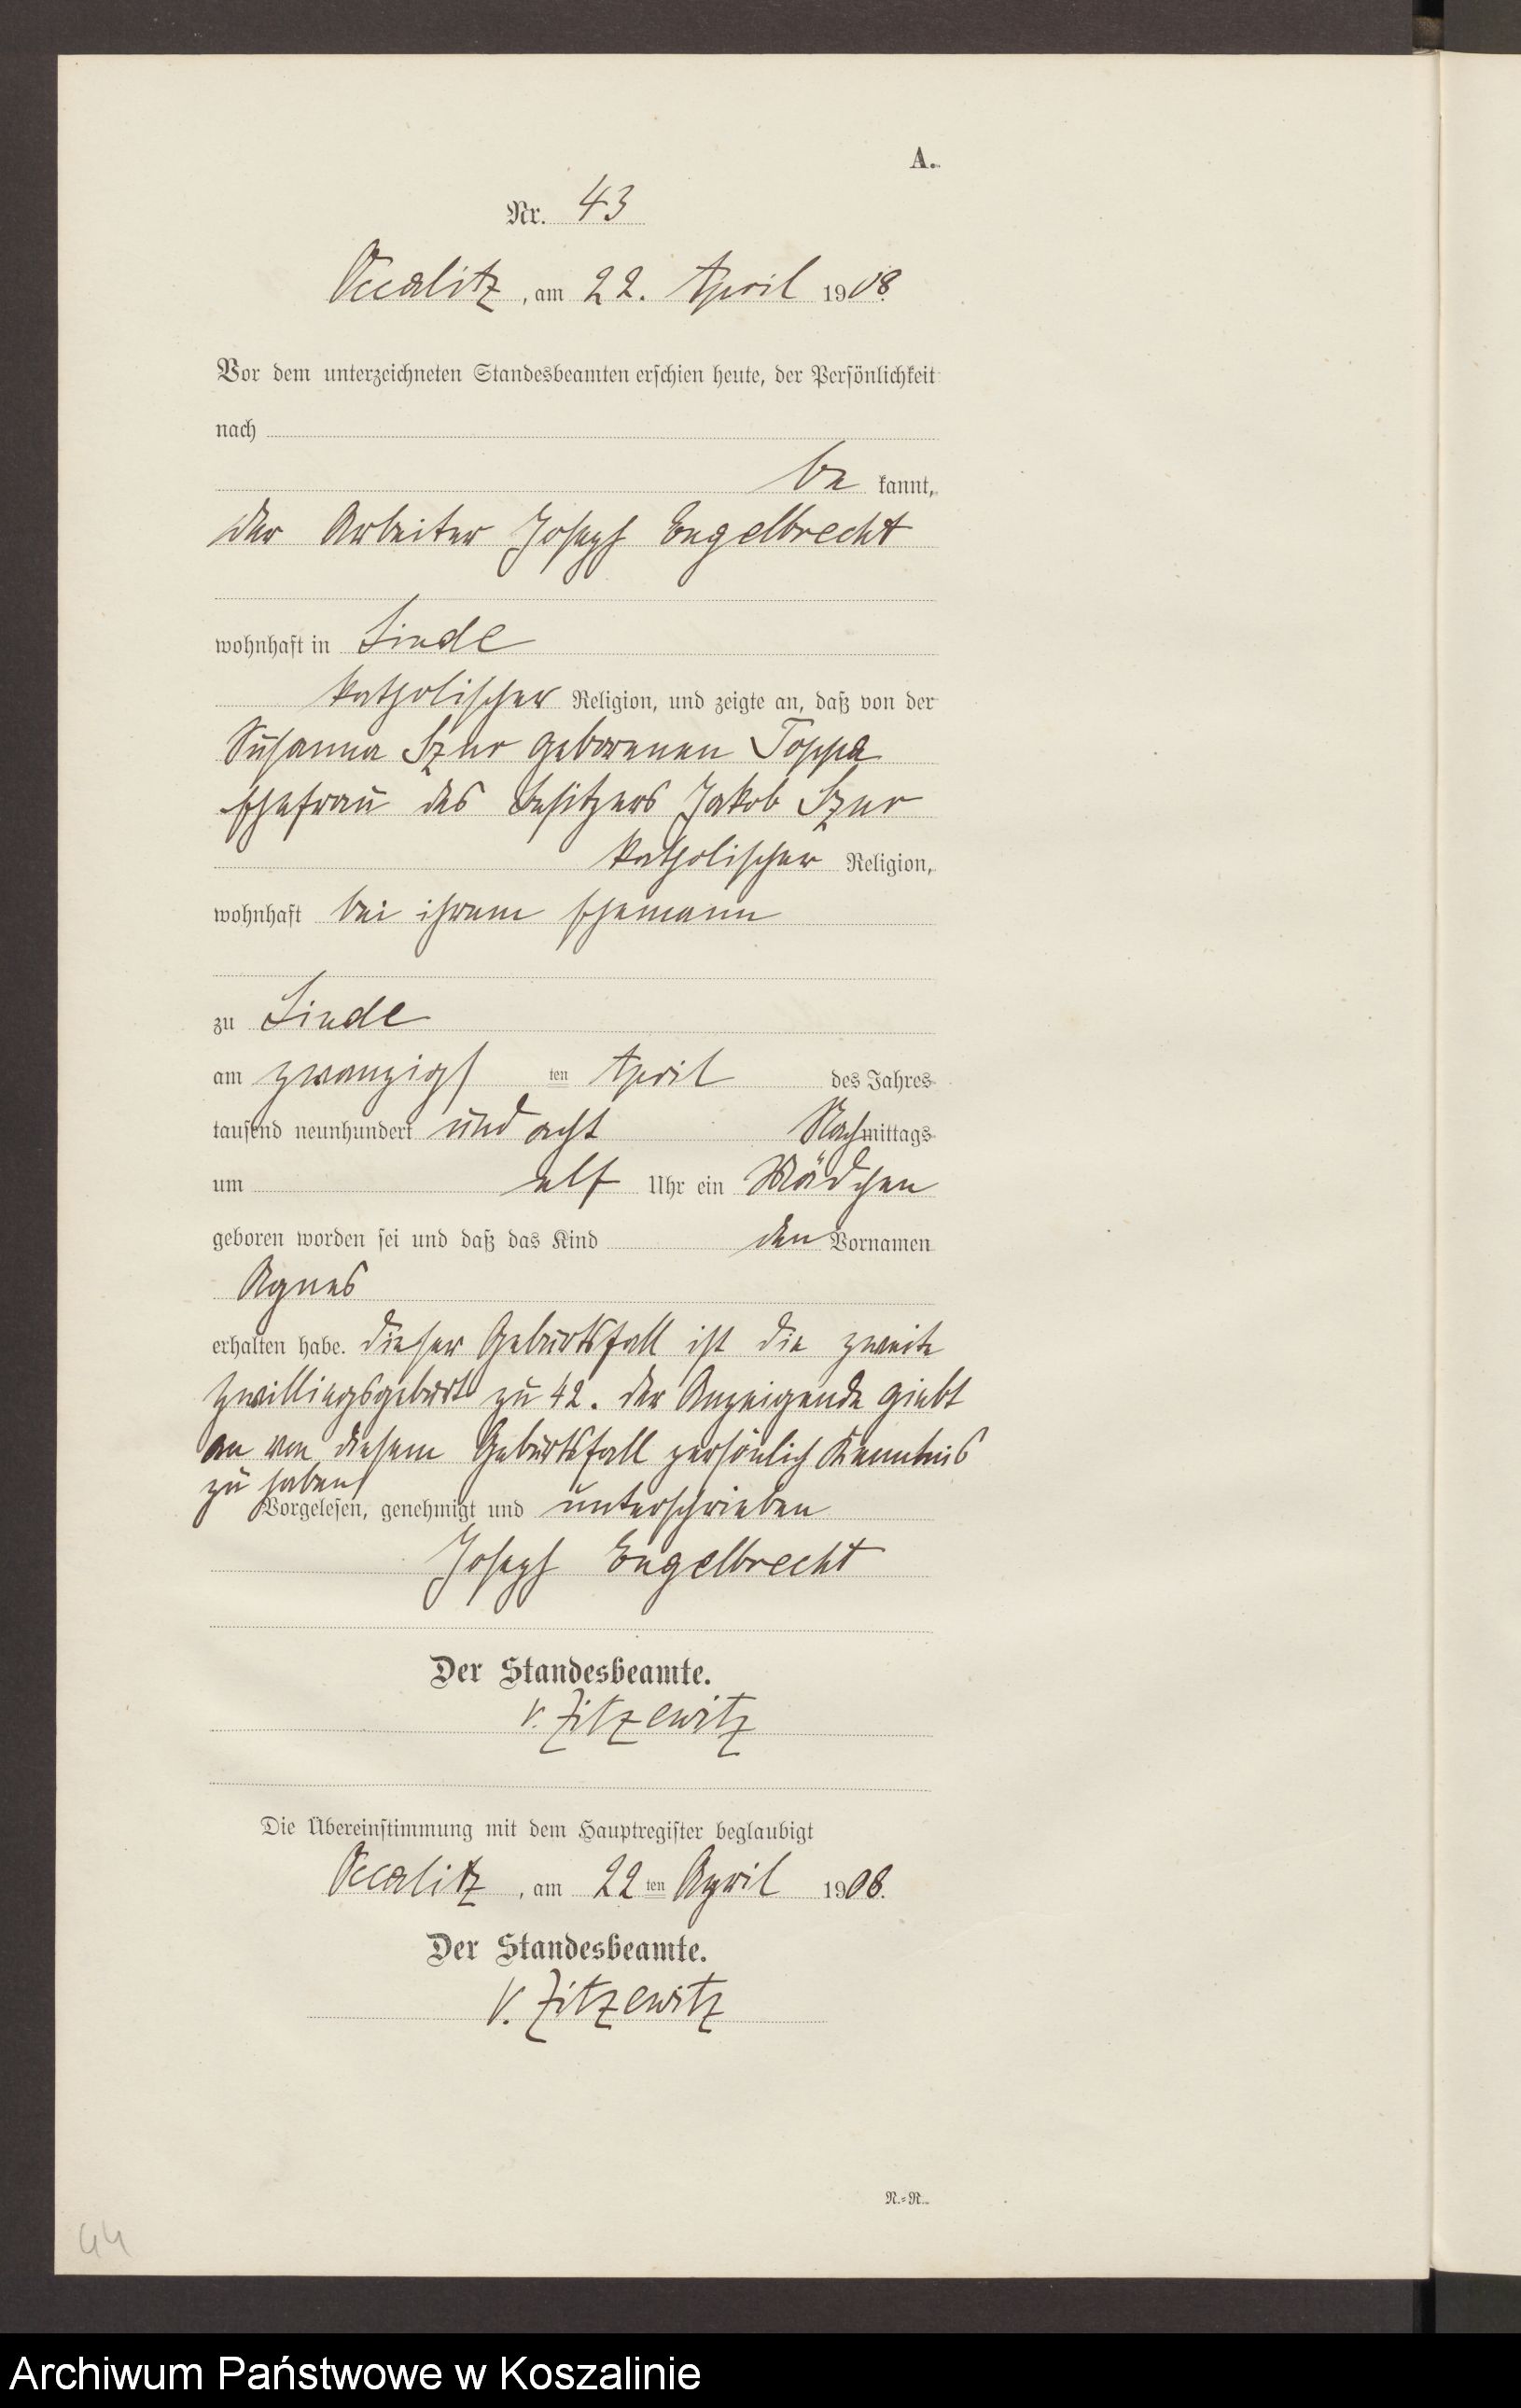 A.
Nr. 43
Occalitz, am 22. April 1908.
Vor dem unterzeichneten Standesbeamten erschien heute, der Persönlichkeit
nach
be kannt,
der Arbeiter Joseph Engelbrecht
wohnhaft in Linde
katholischer Religion, und zeigte an, daß von der
Susanna Szur geborenen Toppa
Ehefrau des Besitzers Jakob Szur
katholischer Religion,
wohnhaft bei ihrem Ehemann
zu Linde
am zwanzigs ten April des Jahres
tausend neunhundert und acht Nachmittags
um elf Uhr ein Mädchen
geboren worden sei und daß das Kind den Vornamen
Agnes
erhalten habe. Dieser Geburtsfall ist die zweite
Zwillingsgeburt zu 42. Der Anzeigende giebt
an von diesem Geburtsfall persönlich Kenntnis
zu haben
Vorgelesen, genehmigt und unterschrieben
Joseph Engelbrecht
Der Standesbeamte.
v. Zitzewitz
Die Übereinstimmung mit dem Hauptregister beglaubigt
Occalitz, am 22 ten April 1908.
Der Standesbeamte.
v. Zitzewitz
N.=R.
44
Archiwum Państwowe w Koszalinie